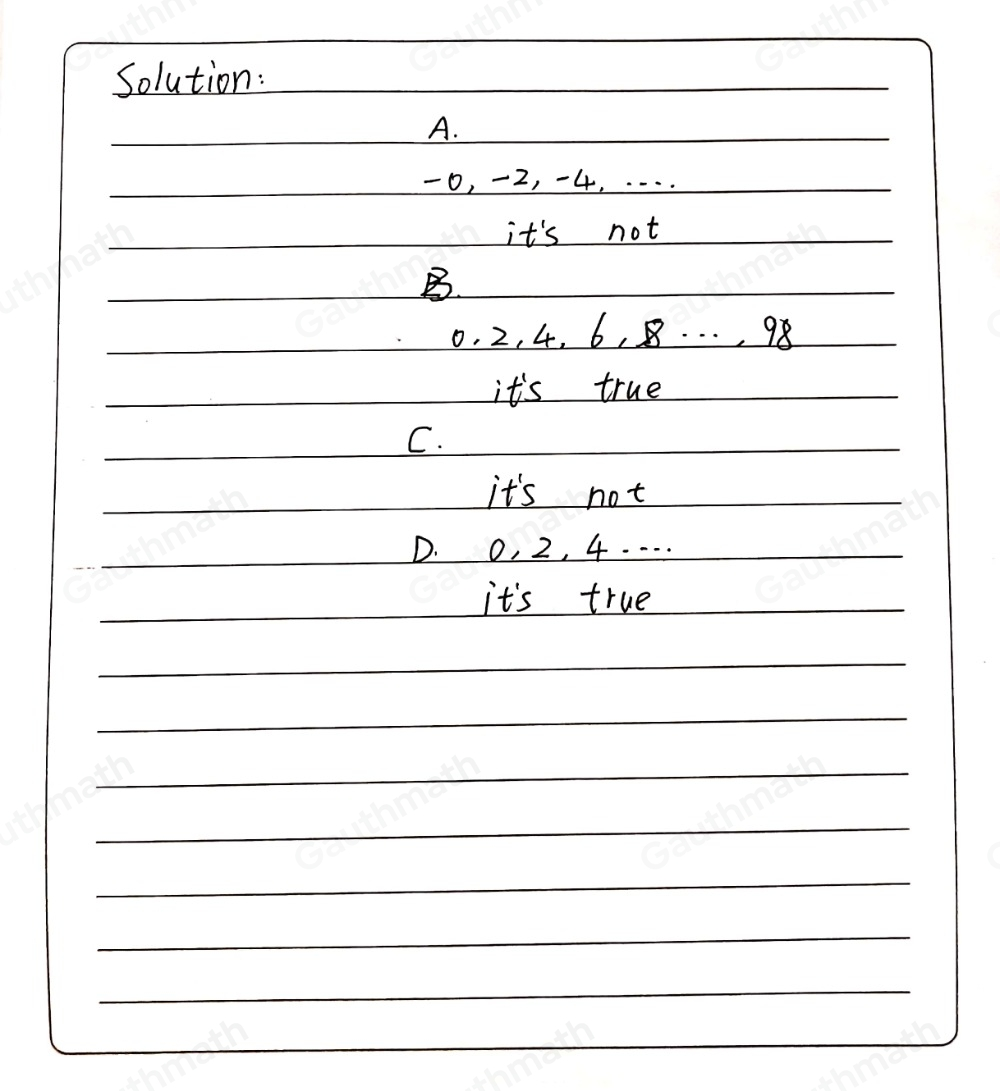 Solution:
A.
-0, -2, -4, ....
it's not
B.
0, 2, 4, 6, 8 ..., 98
it's true
C.
it's not
D. 0, 2, 4 ....
it's true